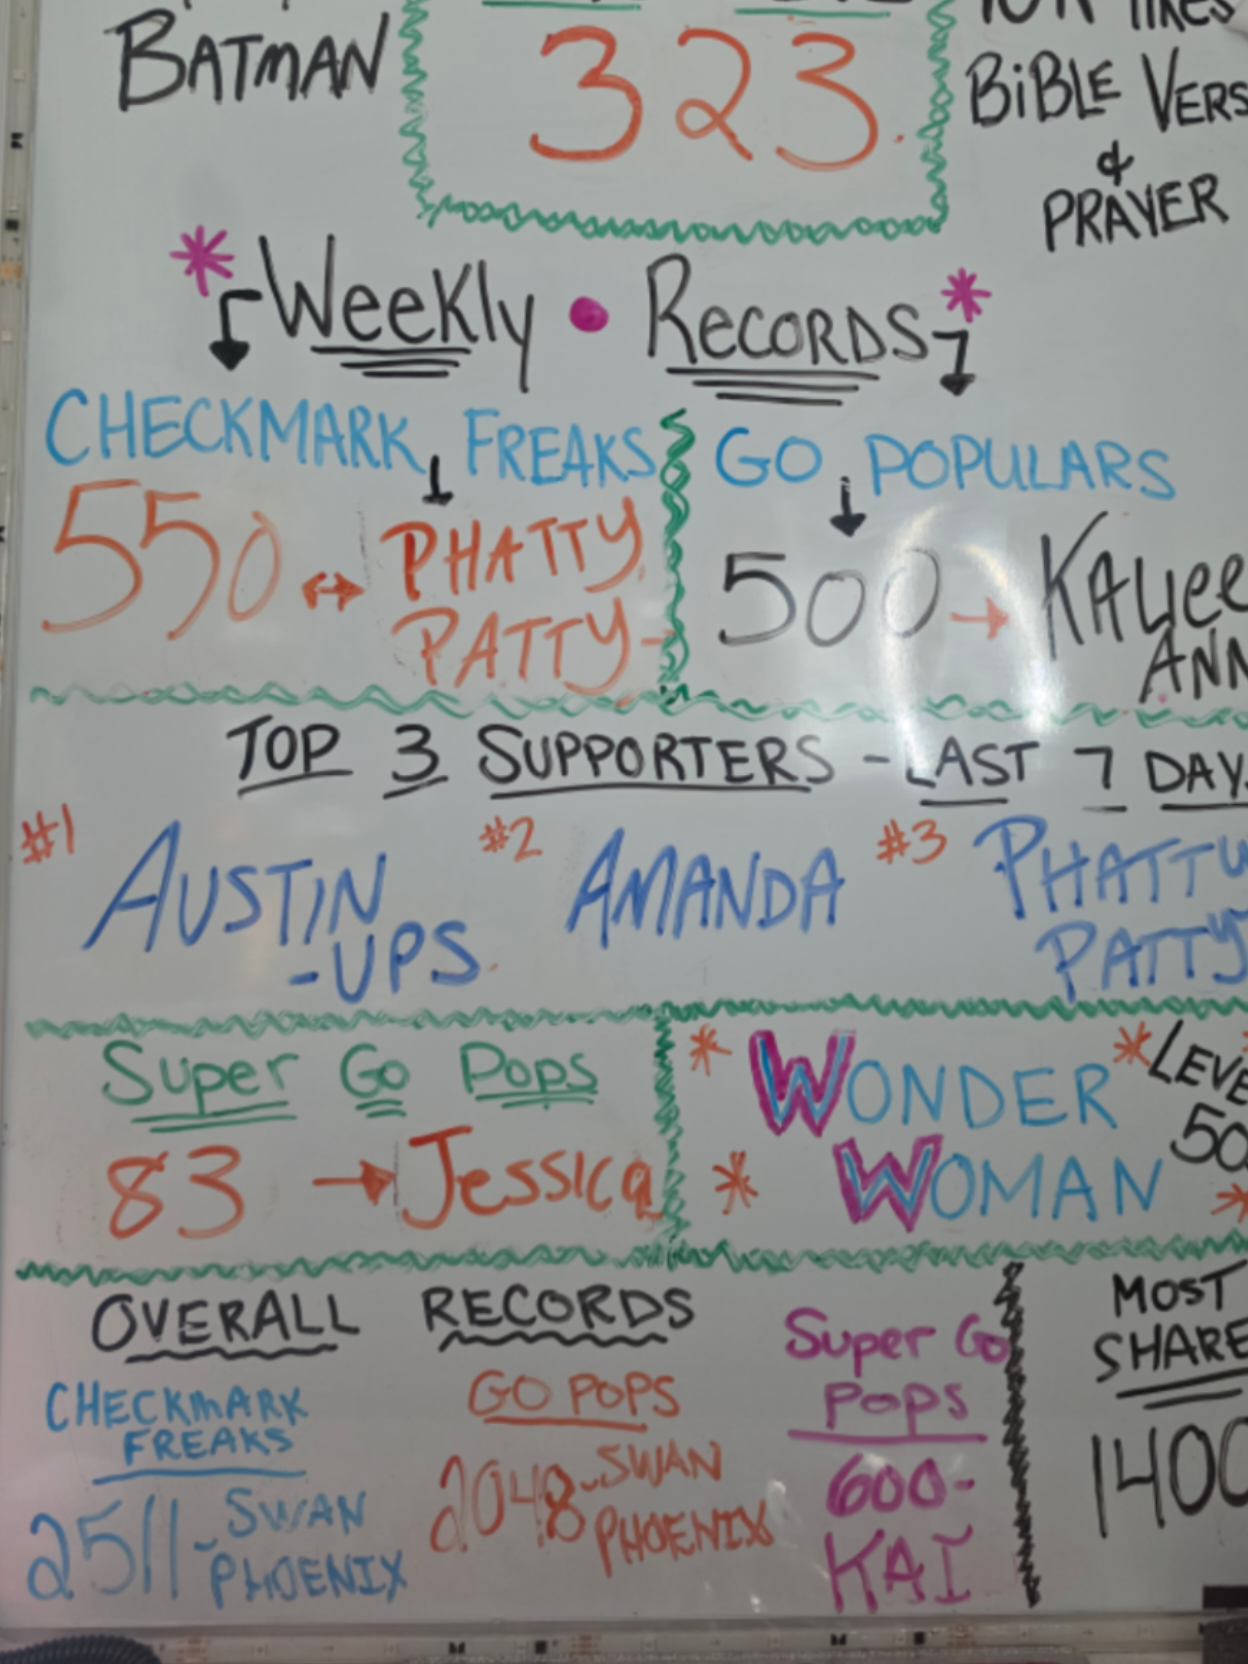 BATMAN
323
BiBLE VERS
&
PRAYER
* WeeKly • RECORDS *
CHECKMARK FREAKS
GO POPULARS
550 ↔ PHATTY
PATTY-
500 → KAYee
ANN
TOP 3 SUPPORTERS - LAST 7 DAY
#1 AUSTIN
-UPS
#2 AMANDA
#3 PHATTY
PATTY
Super Go Pops
83 → Jessica
* WONDER *
* WOMAN *
LEVE
50
OVERALL RECORDS
CHECKMARK
FREAKS
2511-SWAN
PHOENIX
GO POPS
2048-SWAN
PHOENIX
Super Go
Pops
600-
KAI
MOST
SHARE
1400